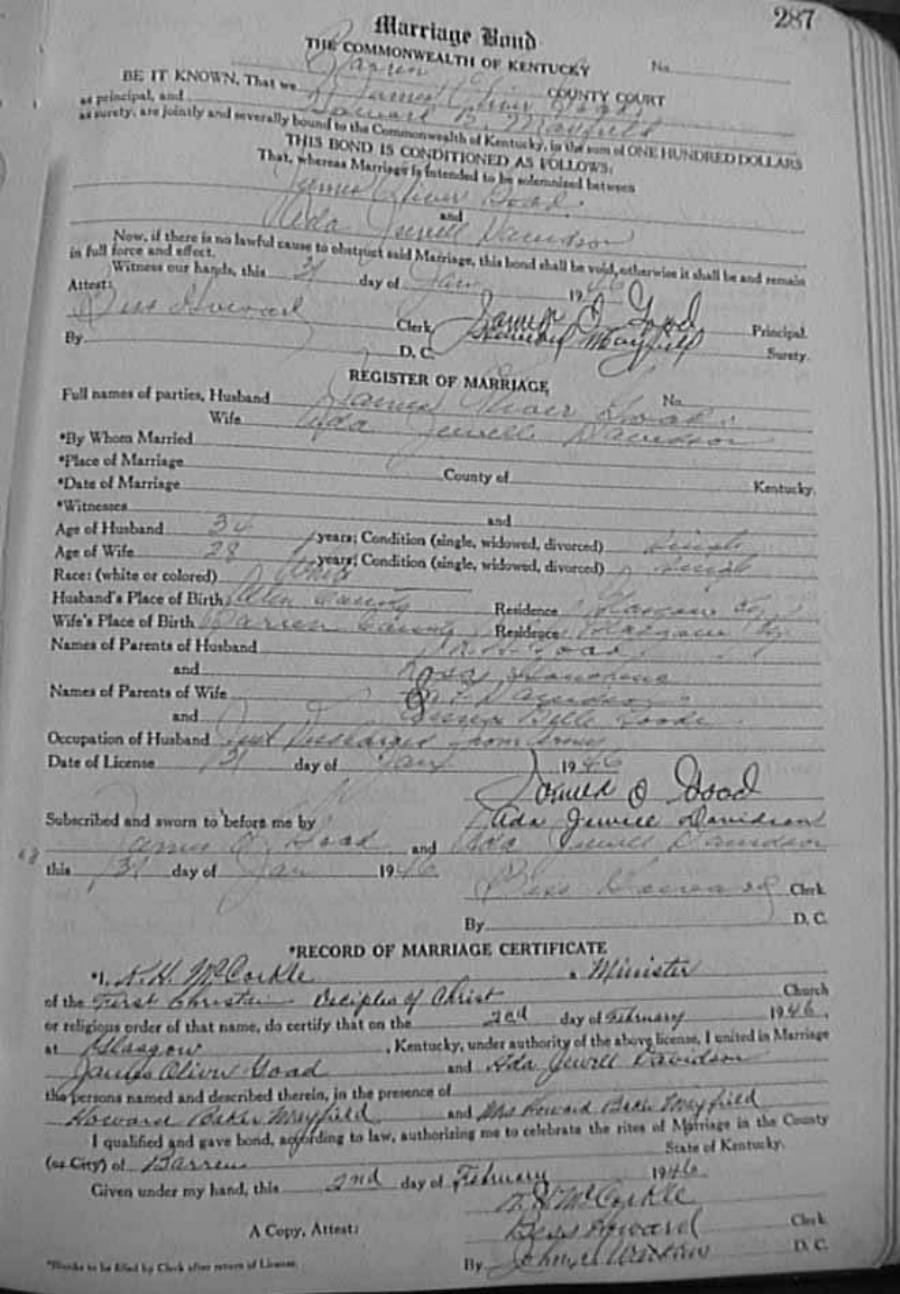 287
Marriage Bond
THE COMMONWEALTH OF KENTUCKY No.
Barren Co. COUNTY COURT
BE IT KNOWN, That we James Oliver Goad
as principal, and Howard B. Mayfield
as surety, are jointly and severally bound to the Commonwealth of Kentucky, in the sum of ONE HUNDRED DOLLARS
THIS BOND IS CONDITIONED AS FOLLOWS:
That, whereas Marriage is intended to be solemnized between
James Oliver Goad
and
Ada Jewell Davidson
Now, if there is no lawful cause to obstruct said Marriage, this bond shall be void, otherwise it shall be and remain
in full force and effect.
Witness our hands, this 31 day of Jan 1946
Attest: James O Goad Principal.
Bess Howard Clerk Howard Mayfield Surety.
By D. C.
REGISTER OF MARRIAGE,
Full names of parties, Husband James Oliver Goad No.
Wife Ada Jewell Davidson
*By Whom Married
*Place of Marriage County of Kentucky.
*Date of Marriage
*Witnesses and
Age of Husband 34 years; Condition (single, widowed, divorced) Single
Age of Wife 28 years; Condition (single, widowed, divorced) Single
Race: (white or colored) White
Husband's Place of Birth Allen County Residence Glasgow Ky
Wife's Place of Birth Barren County Residence Glasgow Ky
Names of Parents of Husband Goad
and Rosa
Names of Parents of Wife Davidson
and Belle Goode
Occupation of Husband Just Discharged from Army
Date of License 31 day of Jan 1946
James O Goad
Subscribed and sworn to before me by Ada Jewell Davidson
James O Goad and Ada Jewell Davidson
this 31 day of Jan 1946
Bess Howard Clerk
By D. C.
*RECORD OF MARRIAGE CERTIFICATE
*I, R. H. McCorkle a Minister
of the First Christian Deciples of Christ Church
or religious order of that name, do certify that on the 2nd day of February 1946,
at Glasgow, Kentucky, under authority of the above license, I united in Marriage
James Oliver Goad and Ada Jewell Davidson
the persons named and described therein, in the presence of
Howard Baker Mayfield and Mrs Howard Baker Mayfield
I qualified and gave bond, according to law, authorizing me to celebrate the rites of Marriage in the County
(or City) of Barren State of Kentucky.
Given under my hand, this 2nd day of February 1946
R. H. McCorkle
A Copy, Attest: Bess Howard Clerk
*Blanks to be filled by Clerk after return of License. By D. C.